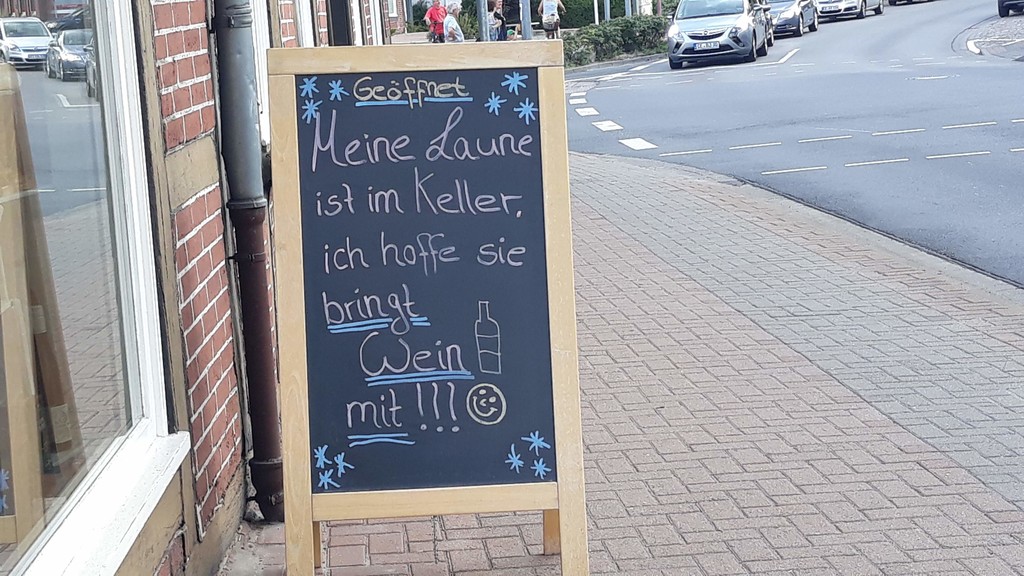 Geöffnet
Meine Laune
ist im Keller,
ich hoffe sie
bringt
Wein
mit!!!